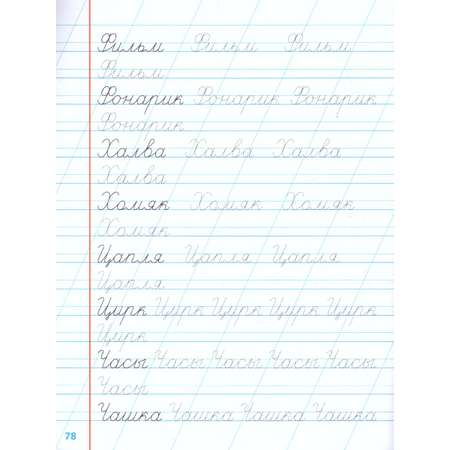 Фильм Фильм Фильм
Фильм
Фонарик Фонарик Фонарик
Фонарик
Халва Халва Халва
Халва
Хомяк Хомяк Хомяк
Хомяк
Цапля Цапля Цапля
Цапля
Цирк Цирк Цирк Цирк Цирк
Цирк
Часы Часы Часы Часы Часы
Часы
Чашка Чашка Чашка Чашка
78